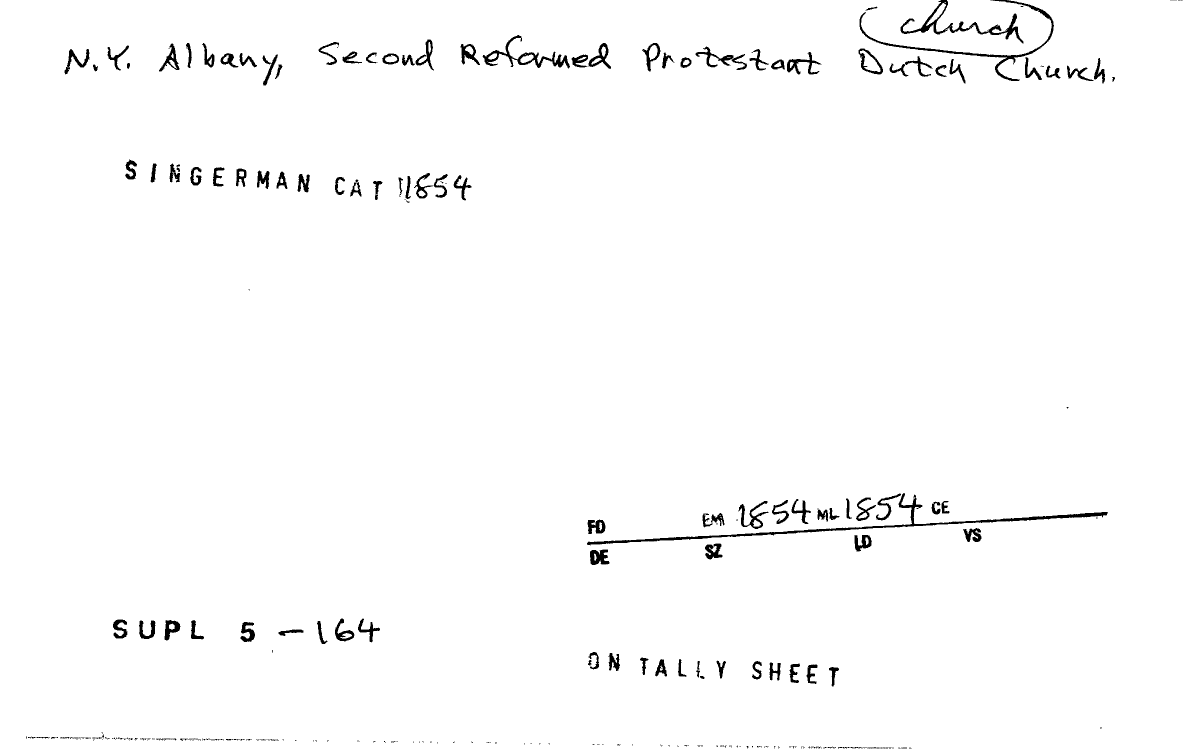 church
N.Y. Albany, Second Reformed Protestant Dutch Church.
SINGERMAN CAT 1854
FD EM 1854 ML 1854 CE
DE SZ LD VS
SUPL 5 - 164
ON TALLY SHEET